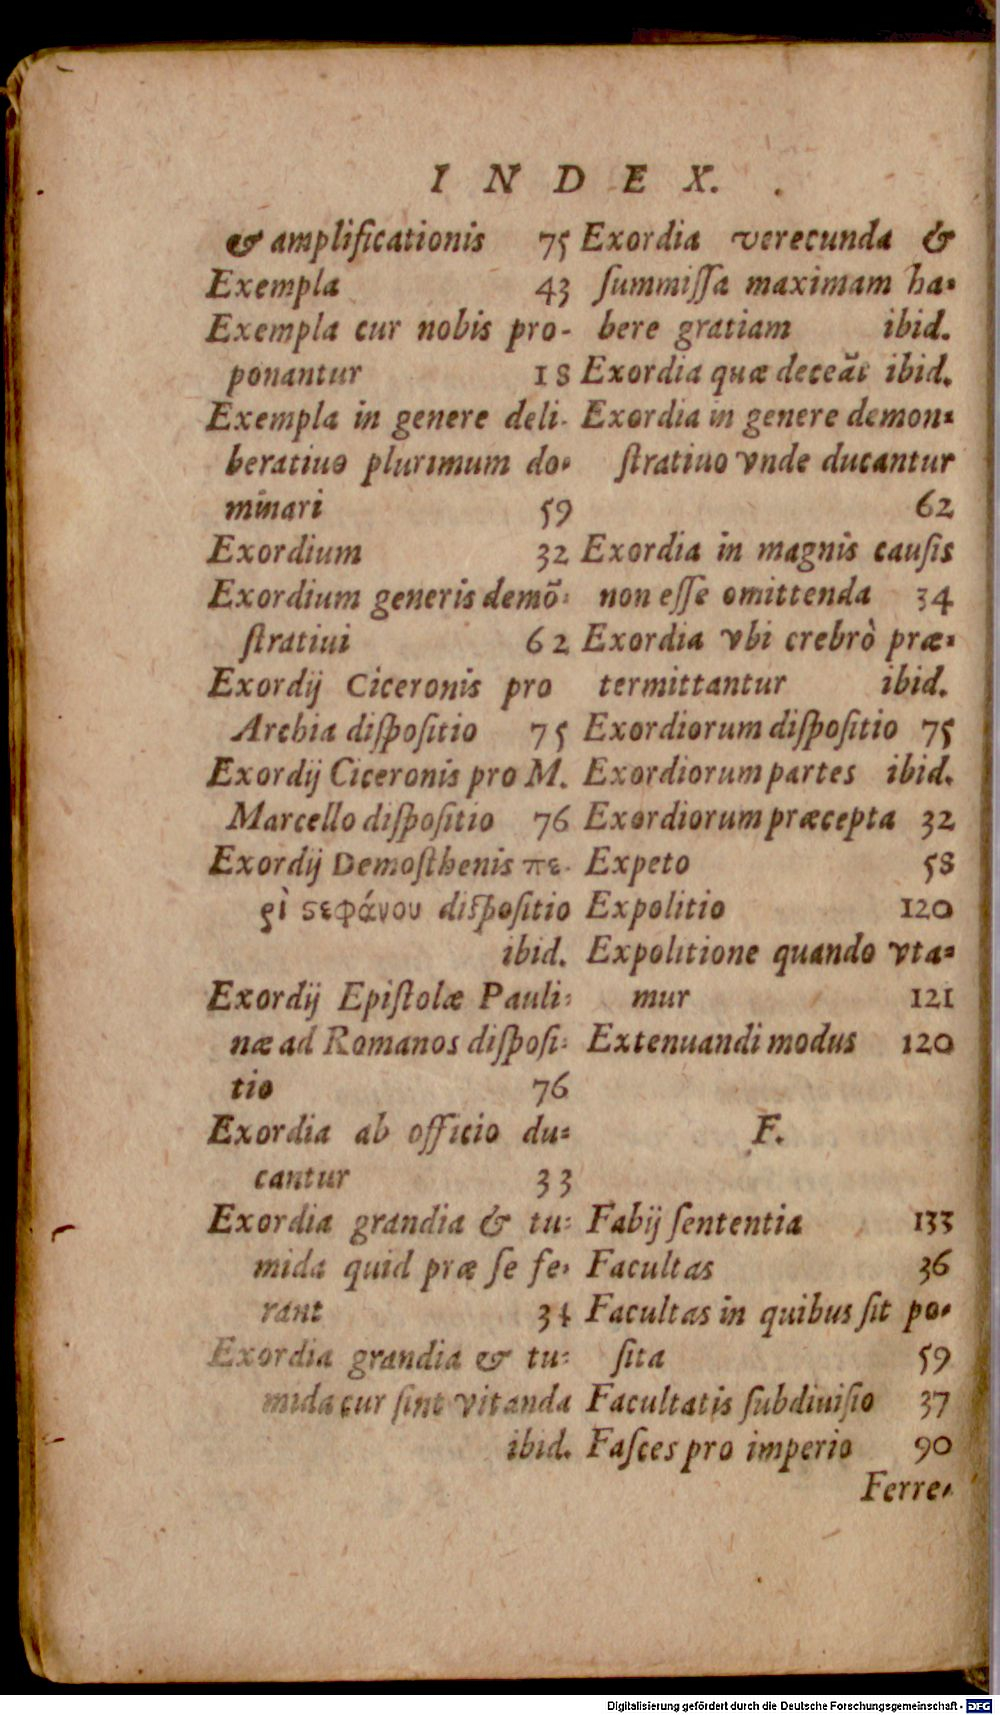 INDEX.
& amplificationis 75
Exempla 43
Exempla cur nobis pro-
ponantur 18
Exempla in genere deli-
beratiuo plurimum do-
minari 59
Exordium 32
Exordium generis demõ-
ſtratiui 62
Exordij Ciceronis pro
Archia diſpoſitio 75
Exordij Ciceronis pro M.
Marcello diſpoſitio 76
Exordij Demoſthenis πε-
ρὶ ϛεφάνου diſpoſitio
ibid.
Exordij Epiſtolæ Pauli-
næ ad Romanos diſpoſi-
tio 76
Exordia ab officio du-
cantur 33
Exordia grandia & tu-
mida quid præ ſe fe-
rant 34
Exordia grandia & tu-
mida cur ſint vitanda
ibid.
Exordia verecunda &
ſummiſſa maximam ha-
bere gratiam ibid.
Exordia quæ deceãt ibid.
Exordia in genere demon-
ſtratiuo vnde ducantur
62
Exordia in magnis cauſis
non eſſe omittenda 34
Exordia vbi crebrò præ-
termittantur ibid.
Exordiorum diſpoſitio 75
Exordiorum partes ibid.
Exordiorum præcepta 32
Expeto 58
Expolitio 120
Expolitione quando vta-
mur 121
Extenuandi modus 120
F.
Fabij ſententia 133
Facultas 36
Facultas in quibus ſit po-
ſita 59
Facultatis ſubdiuiſio 37
Faſces pro imperio 90
Ferre-
Digitalisierung gefördert durch die Deutsche Forschungsgemeinschaft - DFG